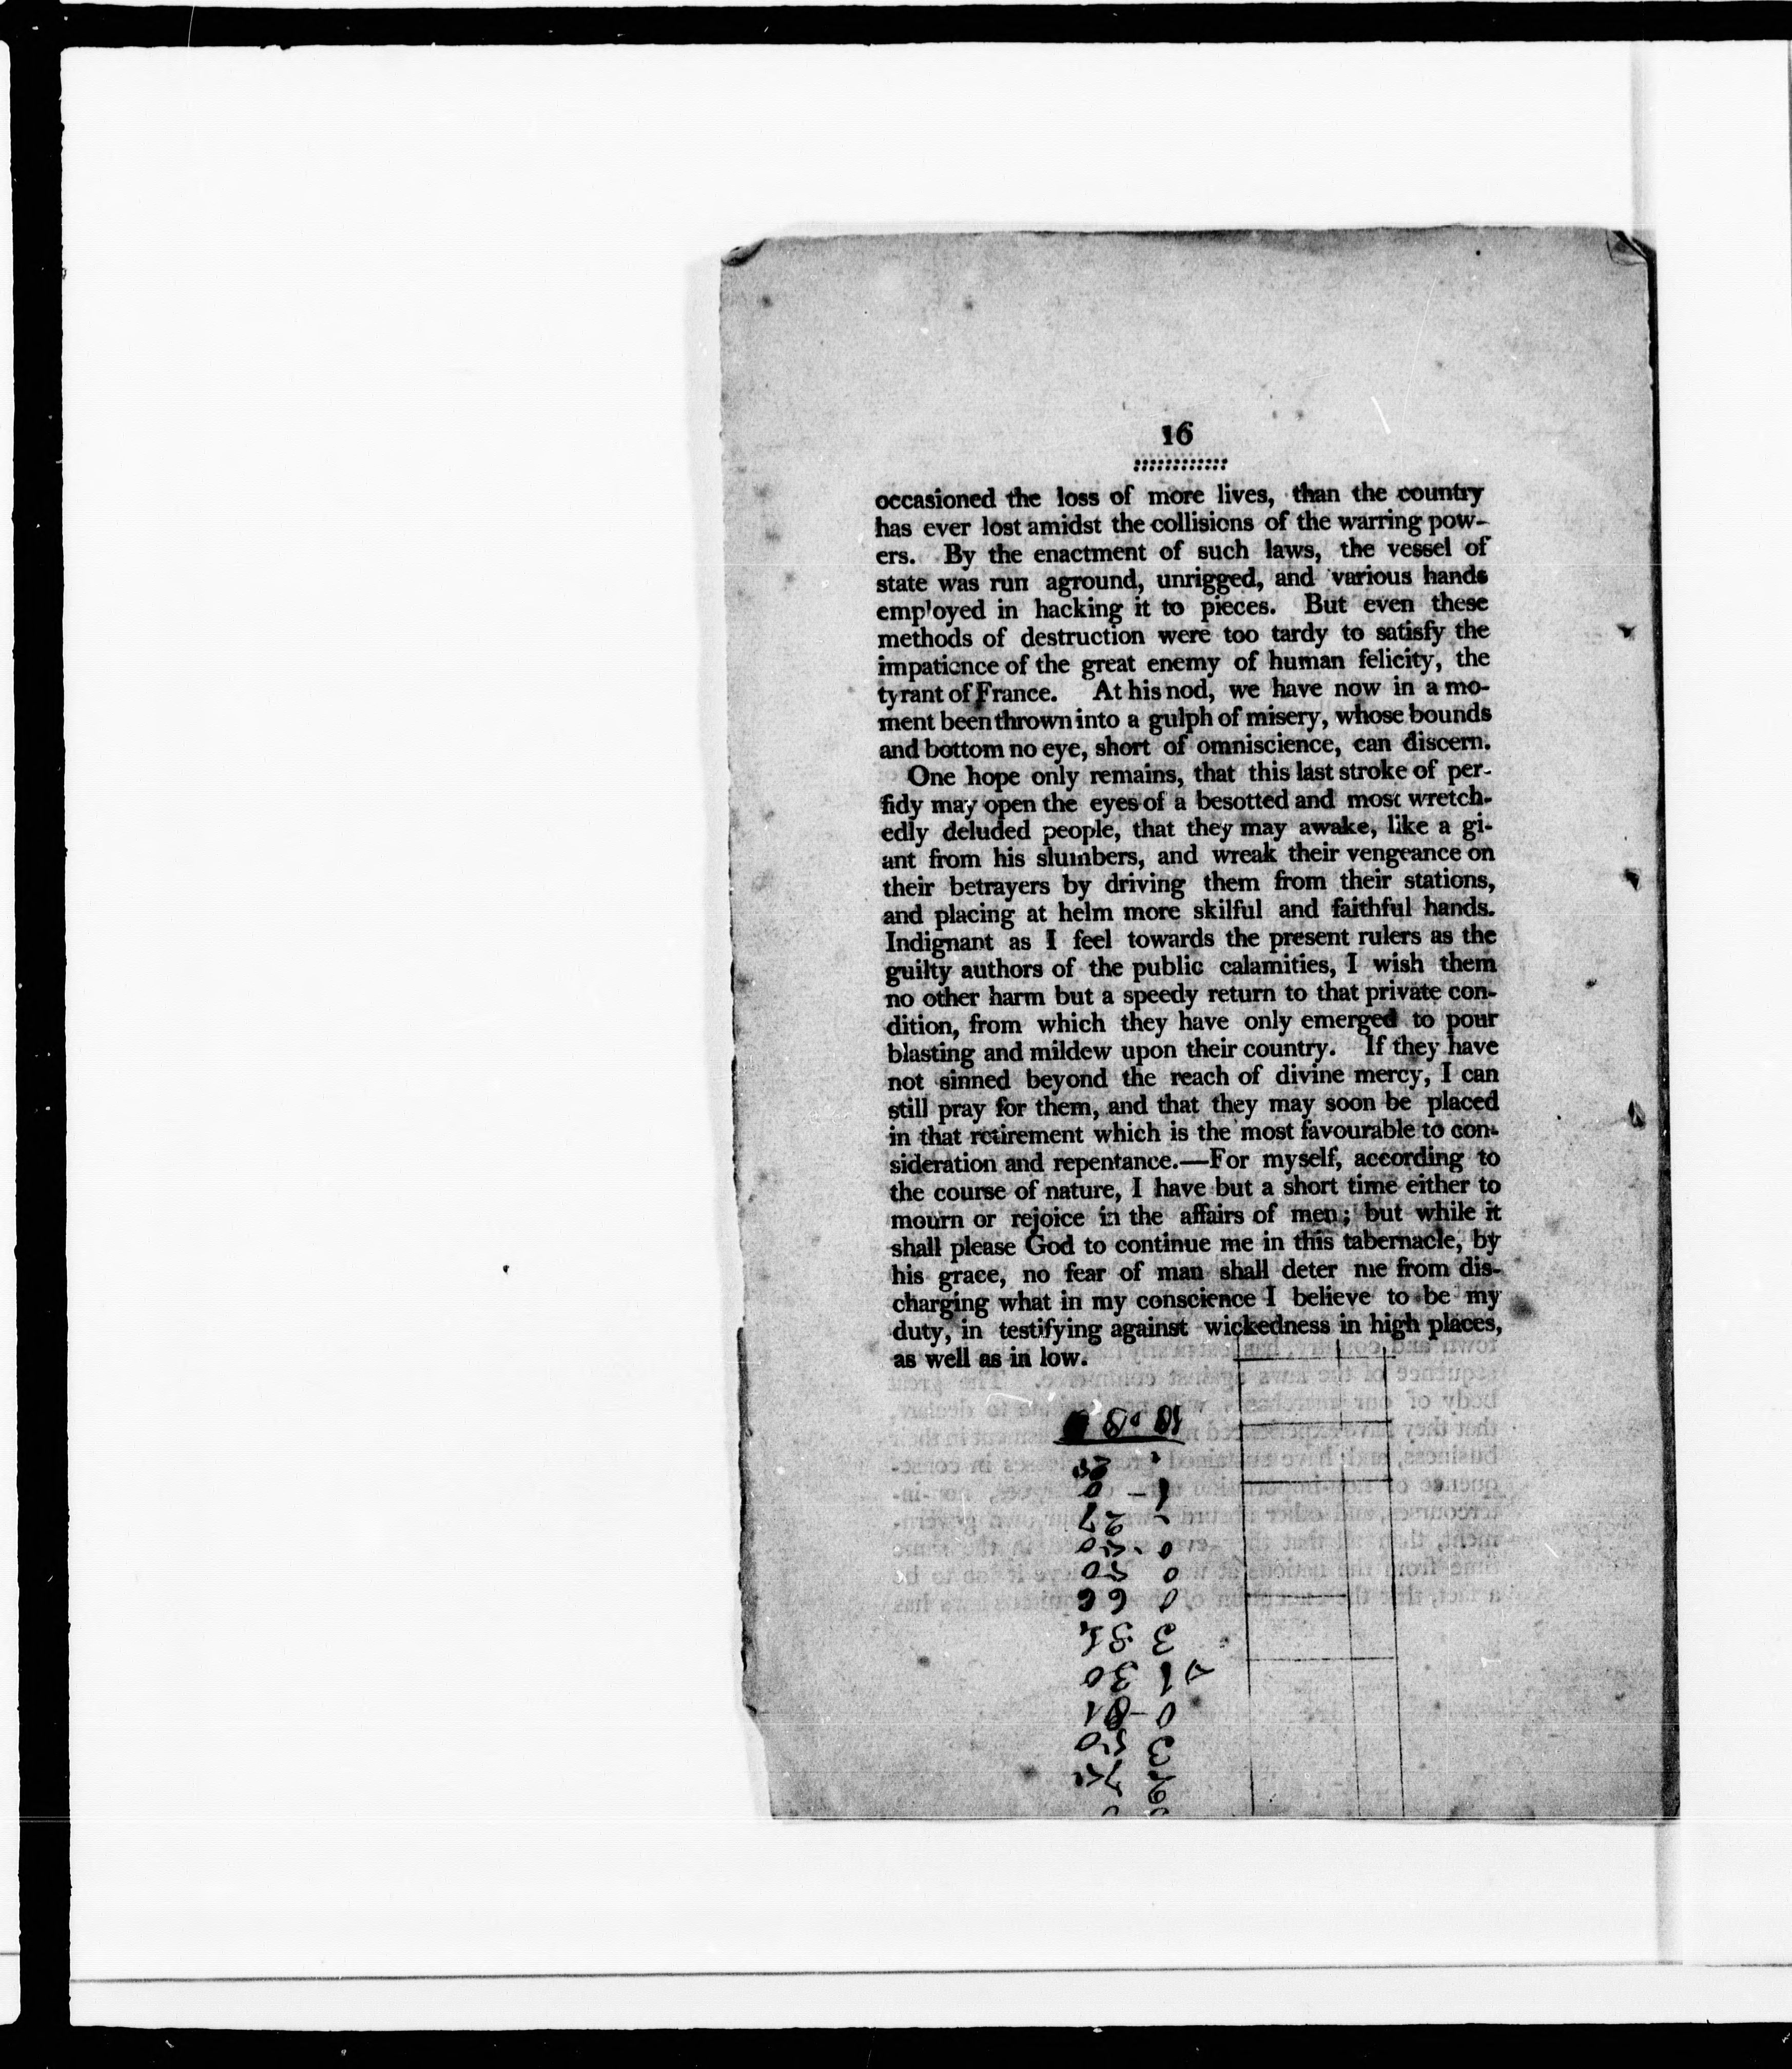 16
occasioned the loss of more lives, than the country
has ever lost amidst the collisions of the warring pow-
ers. By the enactment of such laws, the vessel of
state was run aground, unrigged, and various hands
employed in hacking it to pieces. But even these
methods of destruction were too tardy to satisfy the
impatience of the great enemy of human felicity, the
tyrant of France. At his nod, we have now in a mo-
ment been thrown into a gulph of misery, whose bounds
and bottom no eye, short of omniscience, can discern.
One hope only remains, that this last stroke of per-
fidy may open the eyes of a besotted and most wretch-
edly deluded people, that they may awake, like a gi-
ant from his slumbers, and wreak their vengeance on
their betrayers by driving them from their stations,
and placing at helm more skilful and faithful hands.
Indignant as I feel towards the present rulers as the
guilty authors of the public calamities, I wish them
no other harm but a speedy return to that private con-
dition, from which they have only emerged to pour
blasting and mildew upon their country. If they have
not sinned beyond the reach of divine mercy, I can
still pray for them, and that they may soon be placed
in that retirement which is the most favourable to con-
sideration and repentance.—For myself, according to
the course of nature, I have but a short time either to
mourn or rejoice in the affairs of men; but while it
shall please God to continue me in this tabernacle, by
his grace, no fear of man shall deter me from dis-
charging what in my conscience I believe to be my
duty, in testifying against wickedness in high places,
as well as in low.